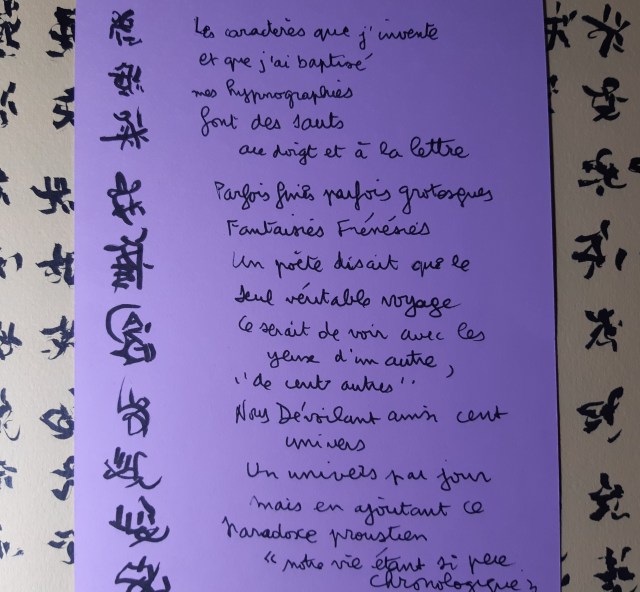 Les caractères que j'invente
et que j'ai baptisé
mes hypnographies
font des sauts
au doigt et à la lettre
Parfois finies parfois grotesques
Fantaisies Frénésies
Un poète disait que le
seul véritable voyage
Ce serait de voir avec les
yeux d'un autre,
"de cent autres"
Nous Dévoilant ainsi cent
univers
Un univers par jour
mais en ajoutant ce
Paradoxe proustien
« notre vie étant si peu
chronologique »